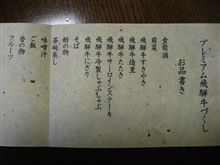 プレミアム飛騨牛づくし
お品書き
食前酒
前菜
飛騨牛すきやき
飛騨牛造里
飛騨牛たたき
飛騨牛サーロインステーキ
飛騨牛冷製しゃぶしゃぶ
飛騨牛にぎり
そば
酢の物
茶碗蒸し
味噌汁
ご飯
香の物
フルーツ